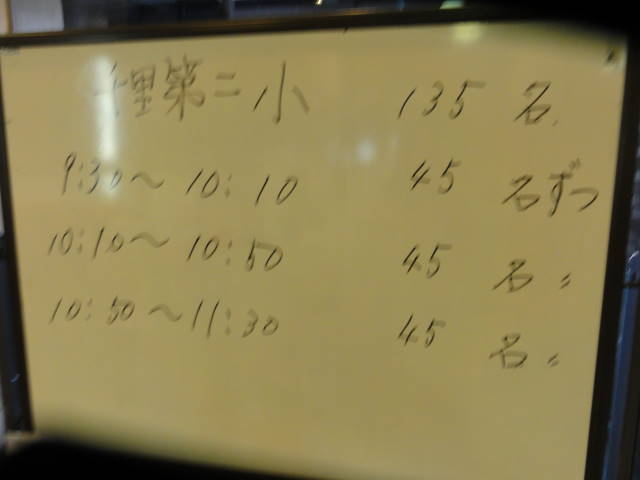 理第二小 135名
9:30〜10:10 45名ずつ
10:10〜10:50 45名〃
10:50〜11:30 45名〃